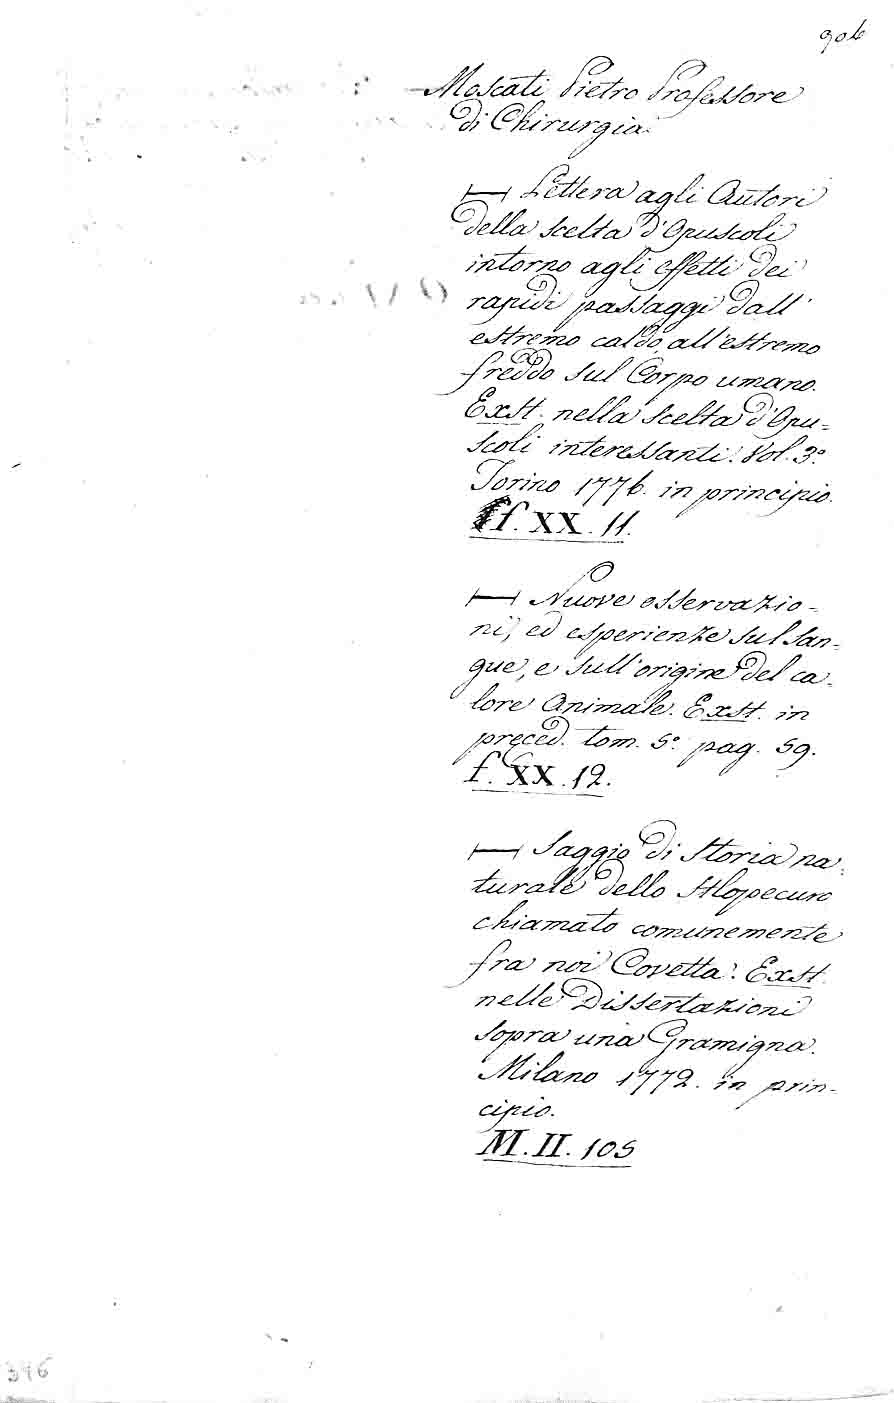 306
Moscati Pietro Professore
di Chirurgia.
Lettera agli Autori
della scelta d'Opuscoli
intorno agli effetti dei
rapidi passaggi dall'
estremo caldo all'estremo
freddo sul Corpo umano.
Exst. nella scelta d'Opu=
scoli interessanti. Vol. 3.º
Torino 1776. in principio.
f. XX. 11.
Nuove osservazio=
ni, ed esperienze sul san=
gue, e sull'origine del ca=
lore Animale. Exst. in
preced. tom. 5.º pag. 59.
f. XX. 12.
Saggio di Storia na=
turale dello Alopecuro
chiamato comunemente
fra noi Covetta. Exst.
nelle Dissertazioni
sopra una Gramigna.
Milano 1772. in prin=
cipio.
M. II. 105
346